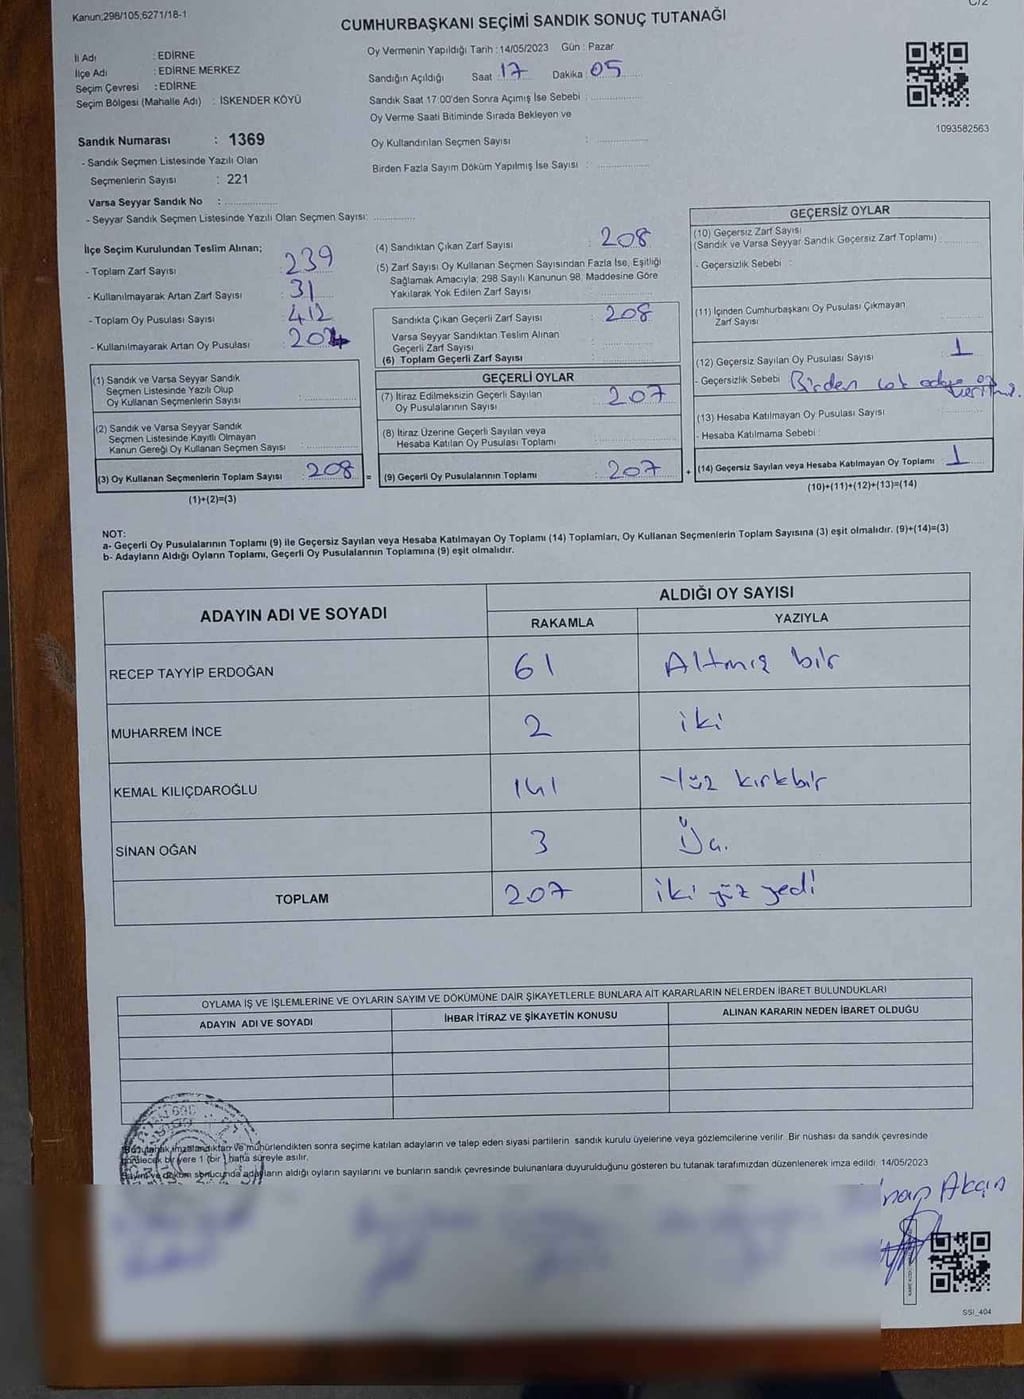 Kanun;298/105,6271/18-1
C/2
CUMHURBAŞKANI SEÇİMİ SANDIK SONUÇ TUTANAĞI
İl Adı : EDİRNE
İlçe Adı : EDİRNE MERKEZ
Seçim Çevresi : EDİRNE
Seçim Bölgesi (Mahalle Adı) : İSKENDER KÖYÜ
Oy Vermenin Yapıldığı Tarih : 14/05/2023 Gün : Pazar
Sandığın Açıldığı Saat : 17 Dakika : 05
Sandık Saat 17:00'den Sonra Açımış İse Sebebi :
Oy Verme Saati Bitiminde Sırada Bekleyen ve
Oy Kullandırılan Seçmen Sayısı :
Birden Fazla Sayım Döküm Yapılmış İse Sayısı :
1093582563
Sandık Numarası : 1369
- Sandık Seçmen Listesinde Yazılı Olan
Seçmenlerin Sayısı : 221
Varsa Seyyar Sandık No :
- Seyyar Sandık Seçmen Listesinde Yazılı Olan Seçmen Sayısı:
İlçe Seçim Kurulundan Teslim Alınan;
- Toplam Zarf Sayısı : 239
- Kullanılmayarak Artan Zarf Sayısı : 31
- Toplam Oy Pusulası Sayısı : 412
- Kullanılmayarak Artan Oy Pusulası :
(1) Sandık ve Varsa Seyyar Sandık
Seçmen Listesinde Yazılı Olup
Oy Kullanan Seçmenlerin Sayısı :
(2) Sandık ve Varsa Seyyar Sandık
Seçmen Listesinde Kayıtlı Olmayan
Kanun Gereği Oy Kullanan Seçmen Sayısı :
(3) Oy Kullanan Seçmenlerin Toplam Sayısı : 208
(1)+(2)=(3)
(4) Sandıktan Çıkan Zarf Sayısı : 208
(5) Zarf Sayısı Oy Kullanan Seçmen Sayısından Fazla İse, Eşitliği
Sağlamak Amacıyla; 298 Sayılı Kanunun 98. Maddesine Göre
Yakılarak Yok Edilen Zarf Sayısı :
Sandıkta Çıkan Geçerli Zarf Sayısı : 208
Varsa Seyyar Sandıktan Teslim Alınan
Geçerli Zarf Sayısı :
(6) Toplam Geçerli Zarf Sayısı :
GEÇERLİ OYLAR
(7) İtiraz Edilmeksizin Geçerli Sayılan
Oy Pusulalarının Sayısı : 207
(8) İtiraz Üzerine Geçerli Sayılan veya
Hesaba Katılan Oy Pusulası Toplamı :
= (9) Geçerli Oy Pusulalarının Toplamı : 207
GEÇERSİZ OYLAR
(10) Geçersiz Zarf Sayısı
(Sandık ve Varsa Seyyar Sandık Geçersiz Zarf Toplamı) :
- Geçersizlik Sebebi :
(11) İçinden Cumhurbaşkanı Oy Pusulası Çıkmayan
Zarf Sayısı :
(12) Geçersiz Sayılan Oy Pusulası Sayısı : 1
- Geçersizlik Sebebi : Birden çok adaya oy
(13) Hesaba Katılmayan Oy Pusulası Sayısı :
- Hesaba Katılmama Sebebi :
+ (14) Geçersiz Sayılan veya Hesaba Katılmayan Oy Toplamı : 1
(10)+(11)+(12)+(13)=(14)
NOT:
a- Geçerli Oy Pusulalarının Toplamı (9) ile Geçersiz Sayılan veya Hesaba Katılmayan Oy Toplamı (14) Toplamları, Oy Kullanan Seçmenlerin Toplam Sayısına (3) eşit olmalıdır. (9)+(14)=(3)
b- Adayların Aldığı Oyların Toplamı, Geçerli Oy Pusulalarının Toplamına (9) eşit olmalıdır.
ADAYIN ADI VE SOYADI
ALDIĞI OY SAYISI
RAKAMLA YAZIYLA
RECEP TAYYİP ERDOĞAN 61 Altmış bir
MUHARREM İNCE 2 iki
KEMAL KILIÇDAROĞLU 141 Yüz kırkbir
SİNAN OĞAN 3 Üç.
TOPLAM 207 iki yüz yedi
OYLAMA İŞ VE İŞLEMLERİNE VE OYLARIN SAYIM VE DÖKÜMÜNE DAİR ŞİKAYETLERLE BUNLARA AİT KARARLARIN NELERDEN İBARET BULUNDUKLARI
ADAYIN ADI VE SOYADI İHBAR İTİRAZ VE ŞİKAYETİN KONUSU ALINAN KARARIN NEDEN İBARET OLDUĞU
Bu tutanak imzalandıktan ve mühürlendikten sonra seçime katılan adayların ve talep eden siyasi partilerin sandık kurulu üyelerine veya gözlemcilerine verilir. Bir nüshası da sandık çevresinde
görülecek bir yere 1 (bir) hafta süreyle asılır.
Sayım ve döküm sonucunda adayların aldığı oyların sayılarını ve bunların sandık çevresinde bulunanlara duyurulduğunu gösteren bu tutanak tarafımızdan düzenlenerek imza edildi. 14/05/2023
Akçın
SSI_404